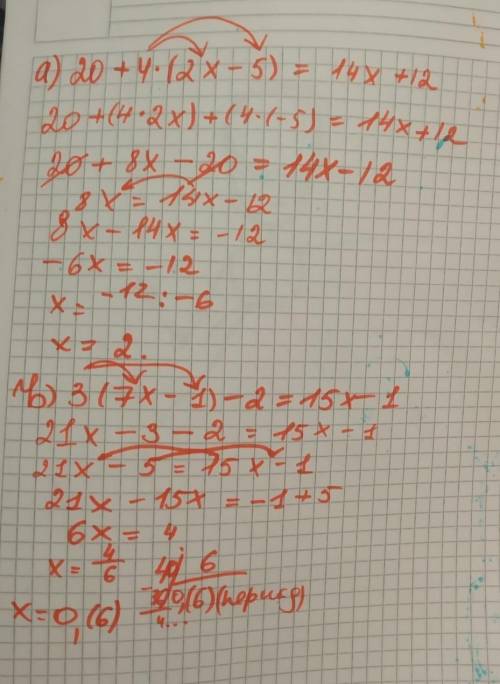 а) 20 + 4·(2x - 5) = 14x + 12
20 + (4·2x) + (4·(-5) = 14x + 12
20 + 8x - 20 = 14x - 12
8x = 14x - 12
8x - 14x = -12
-6x = -12
x = -12 : -6
x = 2.
b) 3(7x - 1) - 2 = 15x - 1
21x - 3 - 2 = 15x - 1
21x - 5 = 15x - 1
21x - 15x = -1 + 5
6x = 4
x = 4/6
40 6
0,(6) (период)
4...
x = 0,(6)